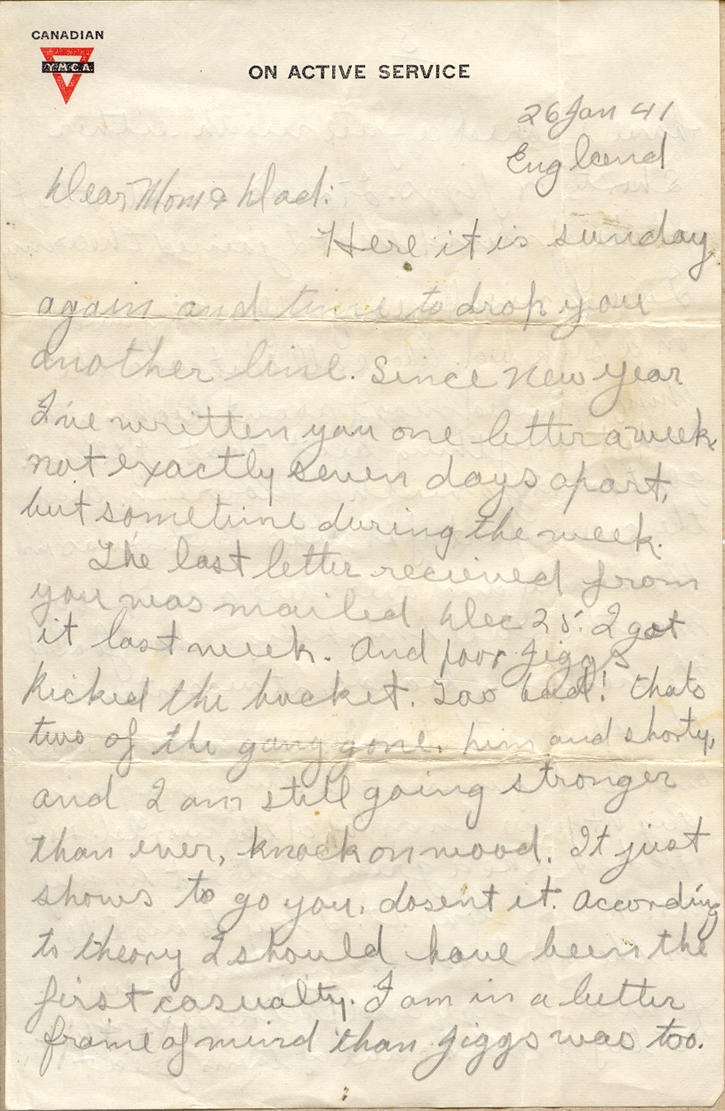 CANADIAN
YMCA
ON ACTIVE SERVICE
26 Jan 41
England
Dear Mom & Dad:
Here it is sunday
again and time to drop you
another line. Since New Year
I've written you one letter a week,
not exactly seven days apart,
but sometime during the week.
The last letter recieved from
you was mailed Dec 25. I got
it last week. And poor Jiggs
kicked the bucket. Too bad! thats
two of the gang gone, him and shorty,
and I am still going stronger
than ever, knock on wood. It just
shows to go you, dosent it. According
to theory I should have been the
first casualty. I am in a better
frame of mind than Jiggs was too.